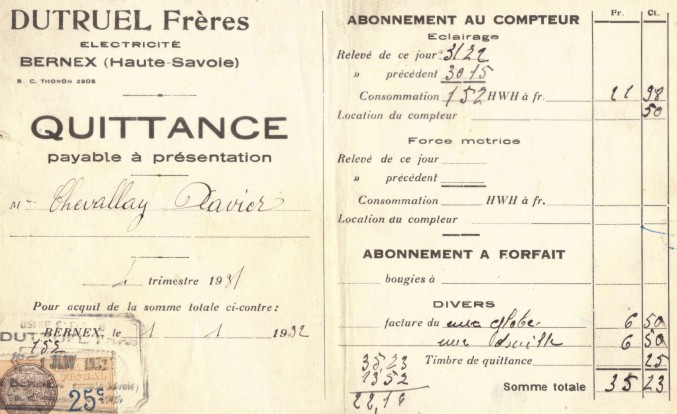 DUTRUEL Frères
ELECTRICITÉ
BERNEX (Haute-Savoie)
R. C. THONON 2908
QUITTANCE
payable à présentation
M Chevallay Xavier
trimestre 1931
Pour acquit de la somme totale ci-contre:
BERNEX, le 1 1 1932
152
1932
BERNEX
25c
ABONNEMENT AU COMPTEUR Fr. Ct.
Eclairage
Relevé de ce jour 3122
» précédent 3015
Consommation 152 HWH à fr. 21 98
Location du compteur 50
Force motrice
Relevé de ce jour
» précédent
Consommation HWH à fr.
Location du compteur
ABONNEMENT A FORFAIT
bougies à
DIVERS
facture du une globe 6 50
une 6 50
Timbre de quittance 25
Somme totale 35 23
35,23
1352
22,16